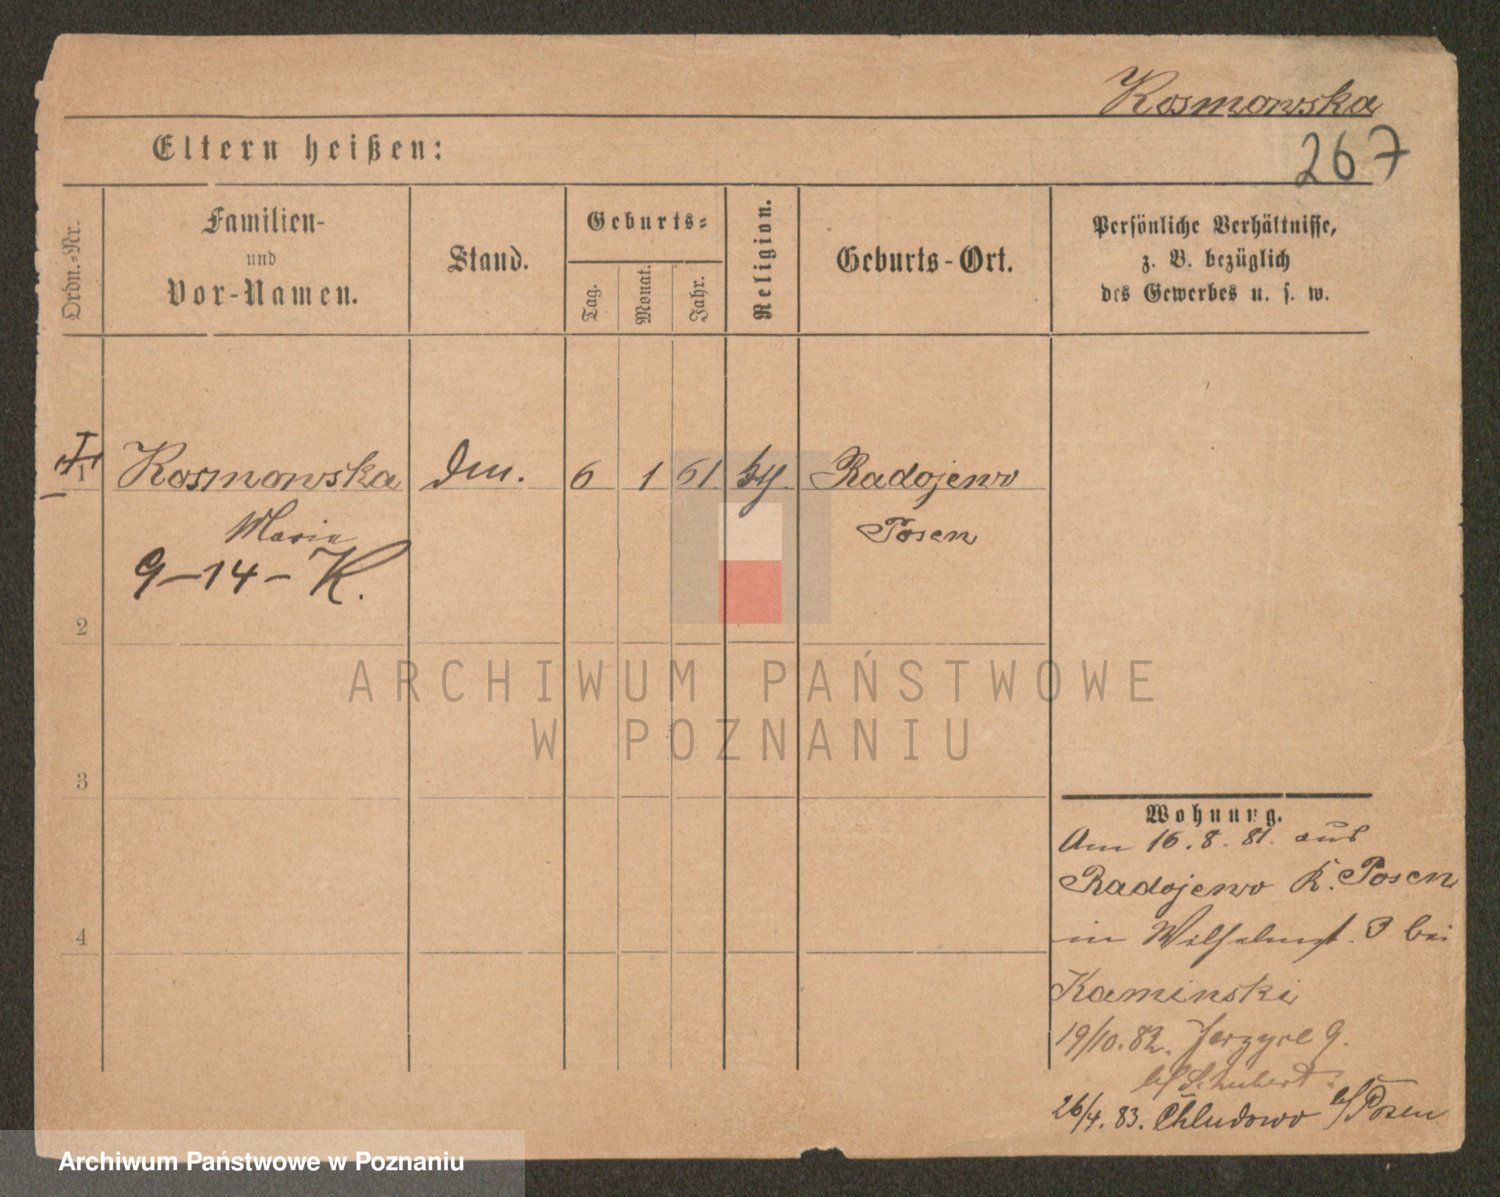 Kosmowska
267
Eltern heißen:
Ordn.-Nr.
Familien-
und
Vor-Namen.
Stand.
Geburts-
Tag.
Monat.
Jahr.
Religion.
Geburts-Ort.
Persönliche Verhältnisse,
z. B. bezüglich
des Gewerbes u. s. w.
1 Kosmowska 6 1 61 Radojewo
Maria Posen
9-14-K.
2
3
4
ARCHIWUM PAŃSTWOWE
W POZNANIU
Wohnung.
Am 16. 8. 81. aus
Radojewo K. Posen
in Wilhelmst. 3 bei
Kaminski
19/10. 82. Jerzyce 9.
b/Schubert.
26/4. 83. Chludowo b/Posen
Archiwum Państwowe w Poznaniu